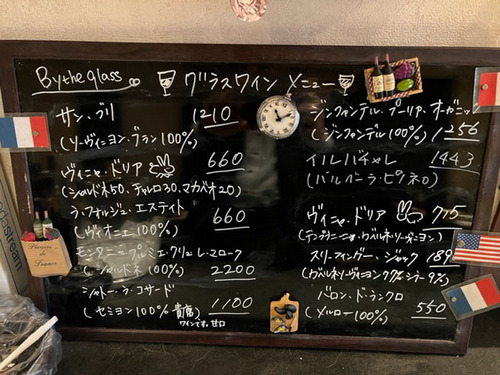 By the glass
グラスワイン メニュー
サン・ブリ 1210
(ソーヴィニヨン・ブラン 100%)
ヴィニャ・ドリア 660
(シャルドネ50、チャレロ30、マカベオ20)
ラ・フォルジュ・エステイト 660
(ヴィオニエ 100%)
モンタニー プルミエ・クリュ レ・マローク
(シャルドネ 100%) 2200
シャトー・ラ・コサード 1100
(セミヨン 100% 貴腐)
ワインです。甘口
ジンファンデル・プーリア・オーガニック
(ジンファンデル 100%) 1256
イル・バチャレ 1443
(バルベーラ・ピノネロ)
ヴィニャ・ドリア 715
(テンプラニーニョ・カベルネソーヴィニヨン)
スリーフィンガー・ジャック 189
(カベルネソーヴィニヨン 97% シラー 9%)
バロン・ド・ランクロ
(メルロー 100%) 550
Plaisirs de France
sodastream